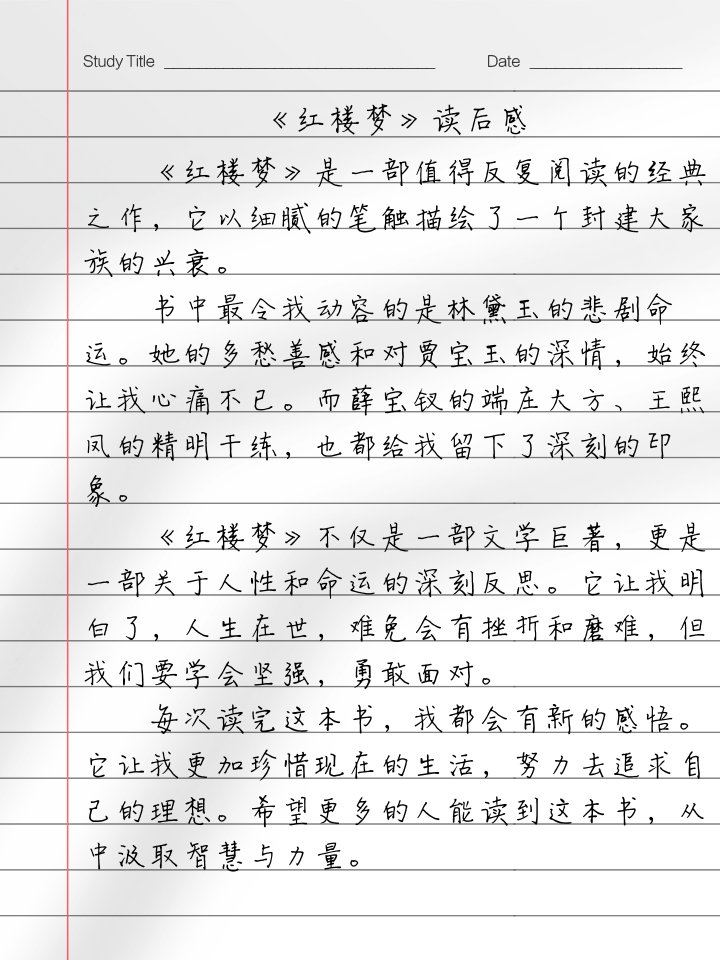 Study Title ______ Date ______
《红楼梦》读后感
《红楼梦》是一部值得反复阅读的经典
之作，它以细腻的笔触描绘了一个封建大家
族的兴衰。
书中最令我动容的是林黛玉的悲剧命
运。她的多愁善感和对贾宝玉的深情，始终
让我心痛不已。而薛宝钗的端庄大方、王熙
凤的精明干练，也都给我留下了深刻的印
象。
《红楼梦》不仅是一部文学巨著，更是
一部关于人性和命运的深刻反思。它让我明
白了，人生在世，难免会有挫折和磨难，但
我们要学会坚强，勇敢面对。
每次读完这本书，我都会有新的感悟。
它让我更加珍惜现在的生活，努力去追求自
己的理想。希望更多的人能读到这本书，从
中汲取智慧与力量。